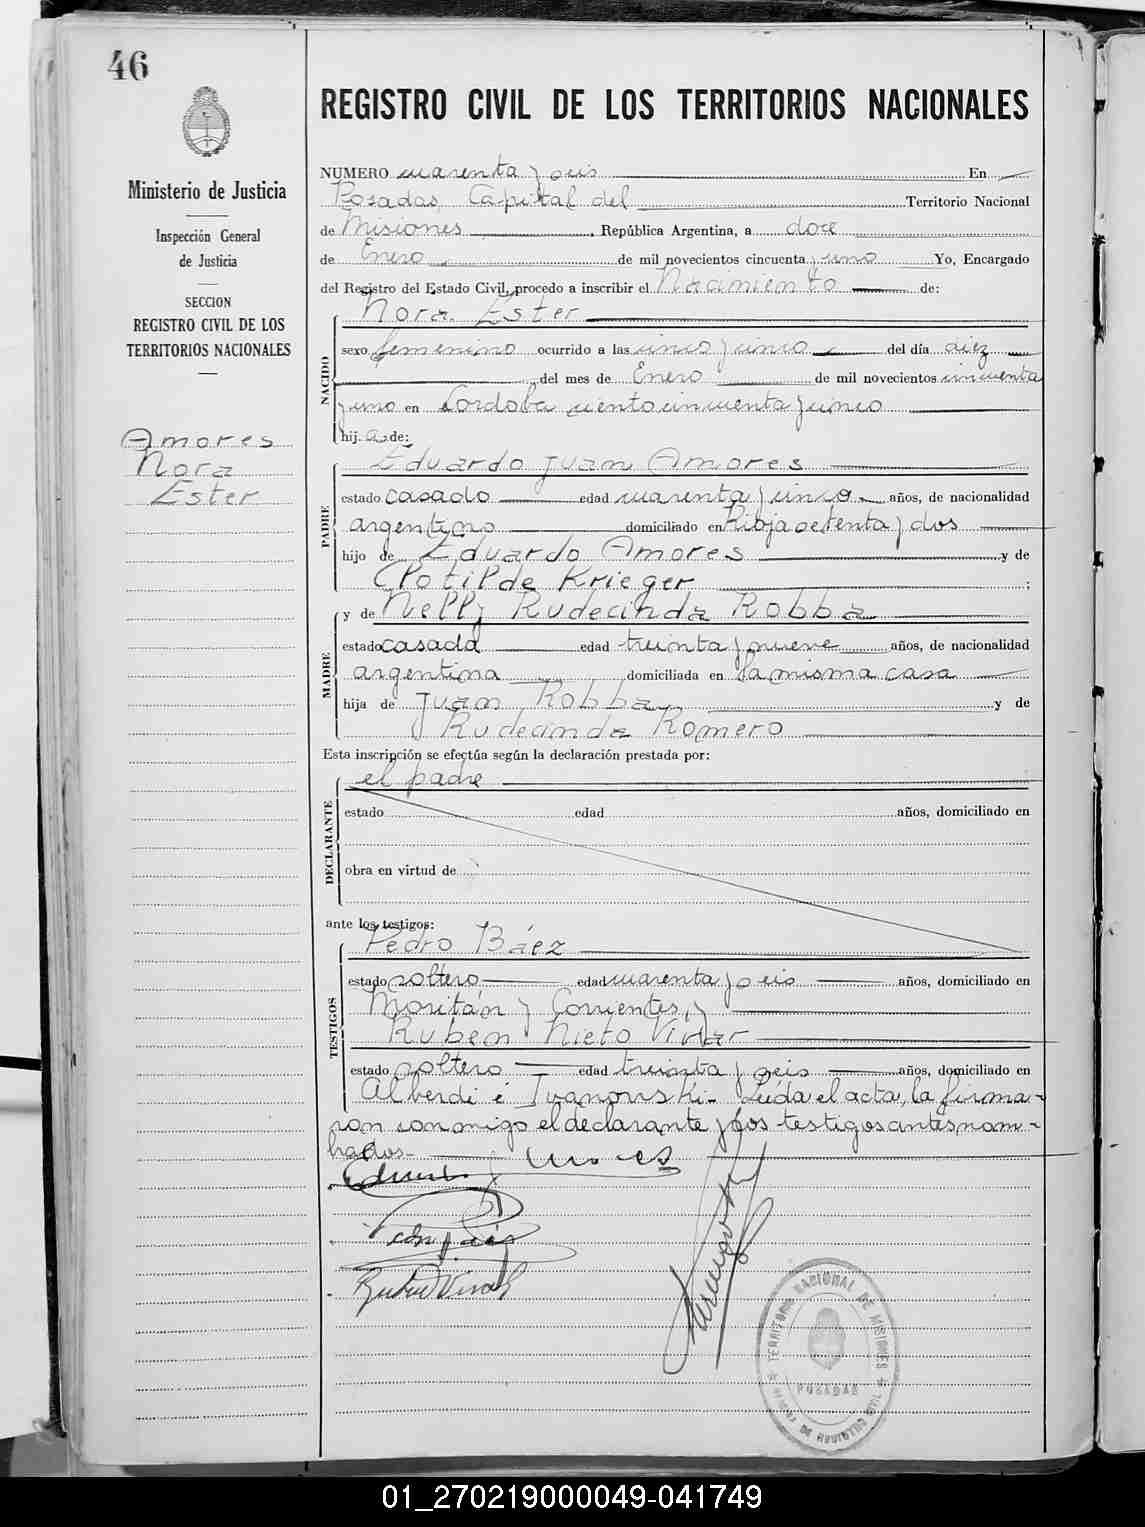 46
REGISTRO CIVIL DE LOS TERRITORIOS NACIONALES
Ministerio de Justicia
Inspección General
de Justicia
SECCION
REGISTRO CIVIL DE LOS
TERRITORIOS NACIONALES
Amores
Nora
Ester
NUMERO cuarenta y seis En
Posadas, Capital del Territorio Nacional
de Misiones, República Argentina, a doce
de Enero de mil novecientos cincuenta y uno Yo, Encargado
del Registro del Estado Civil, procedo a inscribir el Nacimiento de:
NACIDO
Nora Ester
sexo femenino ocurrido a las cinco y cinco del día diez
del mes de Enero de mil novecientos cincuenta
y uno en Córdoba ciento cincuenta y cinco
hij a de:
PADRE
Eduardo Juan Amores
estado casado edad cuarenta y cinco años, de nacionalidad
argentino domiciliado en Rioja setenta y dos
hijo de Eduardo Amores y de
Clotilde Krieger ;
MADRE
y de Nelly Rudecinda Robba
estado casada edad treinta y nueve años, de nacionalidad
argentina domiciliada en la misma casa
hija de Juan Robba y de
Rudecinda Romero
Esta inscripción se efectúa según la declaración prestada por:
DECLARANTE
el padre
estado edad años, domiciliado en
obra en virtud de
ante los testigos:
TESTIGOS
Pedro Báez
estado soltero edad cuarenta y seis años, domiciliado en
y Corrientes, y
Rubén Nieto Vivar
estado soltero edad treinta y seis años, domiciliado en
Alberdi é Ivanowski- Leída el acta, la firma-
ron conmigo el declarante y los testigos antes nom-
brados-
TERRITORIO NACIONAL DE MISIONES
POSADAS
DE REGISTRO CIVIL
01_270219000049-041749